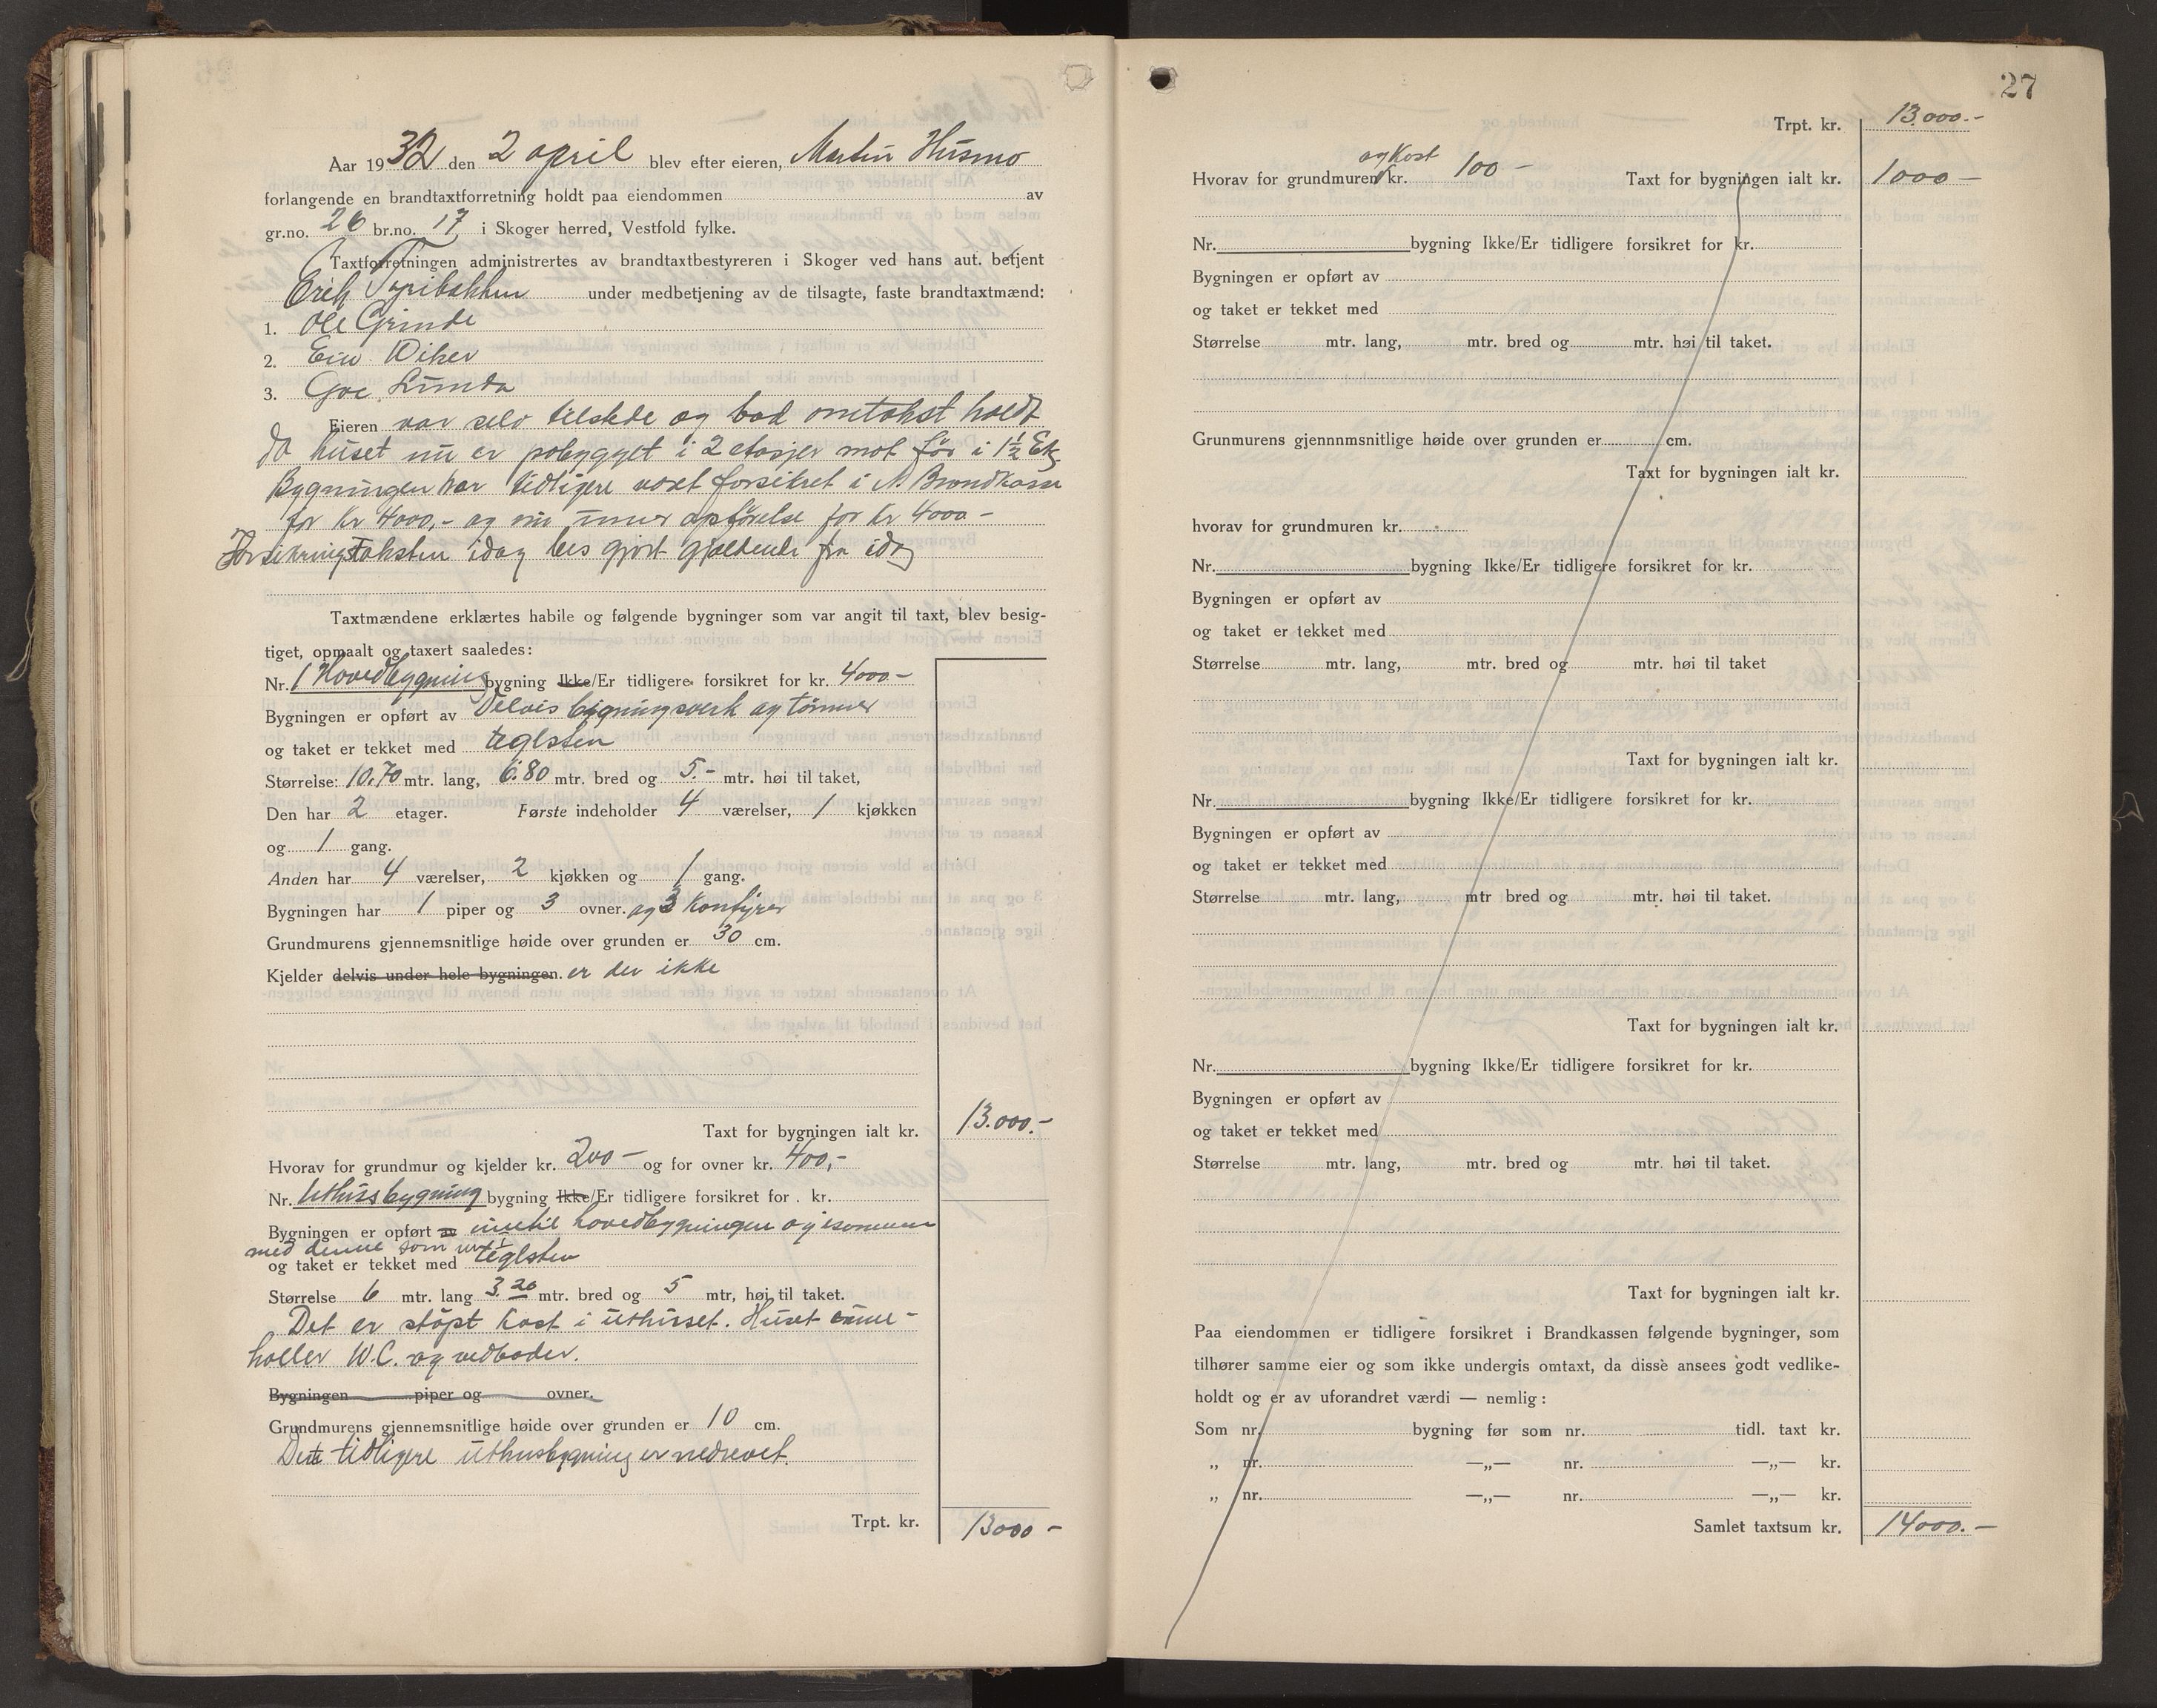 Aar 1932 den 2 april blev efter eieren, Martin Husmo
forlangende en brandtaxtforretning holdt paa eiendommen av
gr.no. 26 br.no. 17 i Skoger herred, Vestfold fylke.
Taxtforretningen administrertes av brandtaxtbestyreren i Skoger ved hans aut. betjent
Erik under medbetjening av de tilsagte, faste brandtaxtmænd:
1. Ole Grinde
2. Wiker
3. Lunda
Eieren var selv tilstede og bad omtakst holdt
da huset nu er paabygget i 2 etasjer mot før i 1½ Etg
Bygningen har tidligere vært forsikret i N. Brandkasse
for kr 4000,- og nu under opførelse for kr 4000 -
Forsikringstaksten idag bes gjort gjældende fra idag
Taxtmændene erklærtes habile og følgende bygninger som var angit til taxt, blev besig-
tiget, opmaalt og taxert saaledes:
Nr. 1 Hovedbygning bygning Ikke/Er tidligere forsikret for kr. 4000 -
Bygningen er opført av delvis bygningsverk og tømmer
og taket er tekket med teglsten
Størrelse: 10,70 mtr. lang, 6.80 mtr. bred og 5.- mtr. høi til taket,
Den har 2 etager. Første indeholder 4 værelser, 1 kjøkken
og 1 gang.
Anden har 4 værelser, 2 kjøkken og 1 gang.
Bygningen har 1 piper og 3 ovner. og 3 Komfyrer
Grundmurens gjennemsnitlige høide over grunden er 30 cm.
Kjelder delvis under hele bygningen. er der ikke
Taxt for bygningen ialt kr. 13.000.-
Hvorav for grundmur og kjelder kr. 200 - og for ovner kr. 400,-
Nr. Uthusbygning bygning Ikke/Er tidligere forsikret for . kr.
Bygningen er opført av inntil hovedbygningen og
med denne som
og taket er tekket med teglsten
Størrelse 6 mtr. lang 3.20 mtr. bred og 5 mtr, høi til taket.
Det er støpt Kost i uthuset. Huset inne-
holler W.C. og vedboder.
Bygningen piper og ovner.
Grundmurens gjennemsnitlige høide over grunden er 10 cm.
Dete tidligere uthusbygning er nedrevet.
Trpt. kr. 13000 -
27
Trpt. kr. 13.000.-
og Kost
Hvorav for grundmuren kr. 100 - Taxt for bygningen ialt kr. 1000 -
Nr. bygning Ikke/Er tidligere forsikret for kr.
Bygningen er opført av
og taket er tekket med
Størrelse mtr. lang, mtr. bred og mtr. høi til taket.
Grunmurens gjennnmsnitlige høide over grunden er cm.
Taxt for bygningen ialt kr.
hvorav for grundmuren kr.
Nr. bygning Ikke/Er tidligere forsikret for kr.
Bygningen er opført av
og taket er tekket med
Størrelse mtr. lang, mtr. bred og mtr. høi til taket
Taxt for bygningen ialt kr.
Nr. bygning Ikke/Er tidligere forsikret for kr.
Bygningen er opført av
og taket er tekket med
Størrelse mtr. lang, mtr bred og mtr. høi til taket.
Taxt for bygningen ialt kr.
Nr. bygning Ikke/Er tidligere forsikret for kr.
Bygningen er opført av
og taket er tekket med
Størrelse mtr. lang, mtr. bred og mtr. høi til taket.
Taxt for bygningen ialt kr.
Paa eiendommen er tidligere forsikret i Brandkassen følgende bygninger, som
tilhører samme eier og som ikke undergis omtaxt, da disse ansees godt vedlike-
holdt og er av uforandret værdi — nemlig:
Som nr. bygning før som nr. tidl. taxt kr.
„ nr. —„— nr. —„— kr.
„ nr. —„— nr. —„— kr.
Samlet taxtsum kr. 14000.-